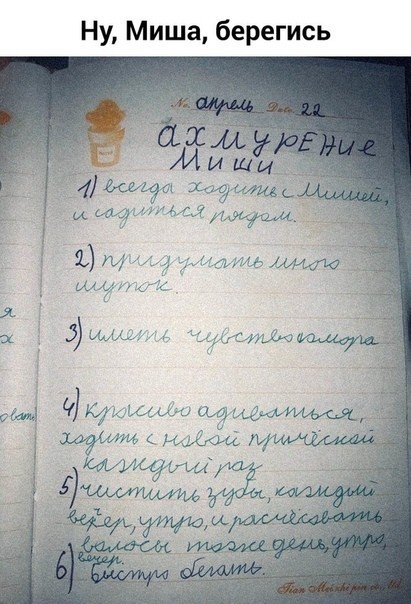 Ну, Миша, берегись
No. апрель Date. 22
ахмурение
Миши
1) всегда ходить с Мишей,
и садиться рядом.
2) придумать много
шуток.
3) иметь чувство юмора
я
4) красиво адиваться,
ходить с новой причёской
каждый раз
5) чистить зубы, каждый
вечер, утро, и расчёсовать
волосы тоже день, утро,
вечер.
6) быстро бегать.